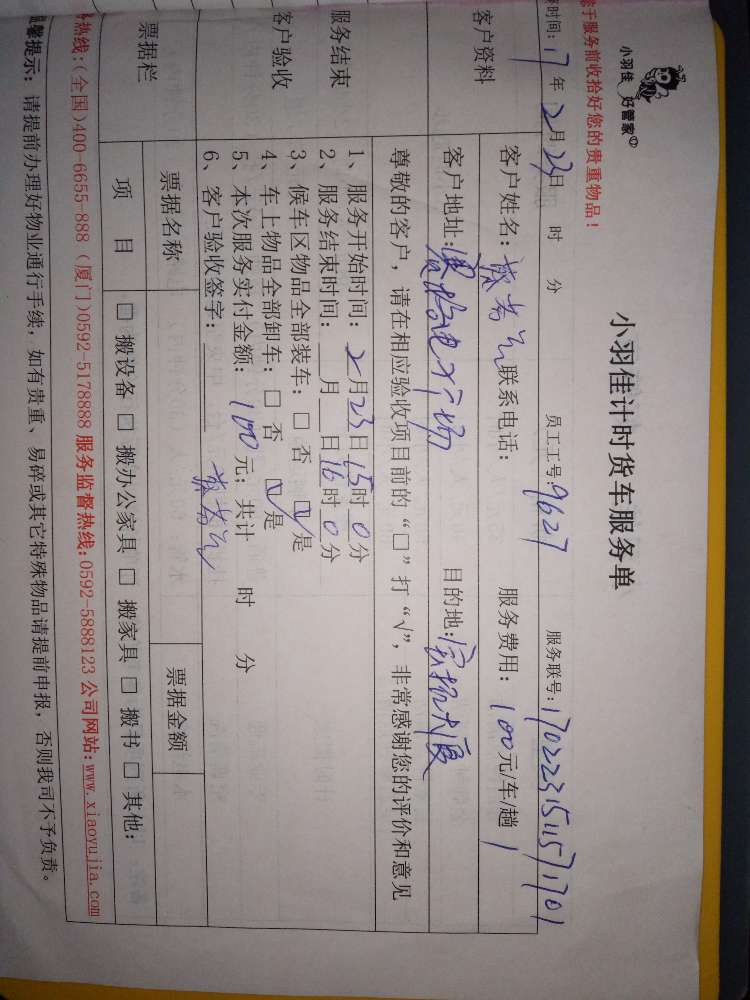 小羽佳 好管家
于服务前收拾好您的贵重物品！
小羽佳计时货车服务单
时间：17年2月23日 时 分 员工工号：9627 服务联号：170223151571701
客户资料
客户姓名： 联系电话： 服务费用：100元/车/趟
客户地址： 目的地：
尊敬的客户，请在相应验收项目前的“□”打“√”，非常感谢您的评价和意见
服务结束
客户验收
1、服务开始时间：2月23日15时0分
2、服务结束时间：__月__日16时0分
3、候车区物品全部装车：□ 否 ☑是
4、车上物品全部卸车：□ 否 ☑是
5、本次服务实付金额：100元；共计 时 分
6、客户验收签字：
票据栏
票据名称 票据金额
项 目 □ 搬设备 □ 搬办公家具 □ 搬家具 □ 搬书 □ 其他：
热线：(全国)400-6655-888 (厦门)0592-5178888 服务监督热线：0592-5888123 公司网站：www.xiaoyujia.com
馨提示：请提前办理好物业通行手续，如有贵重、易碎或其它特殊物品请提前申报，否则我司不予负责。